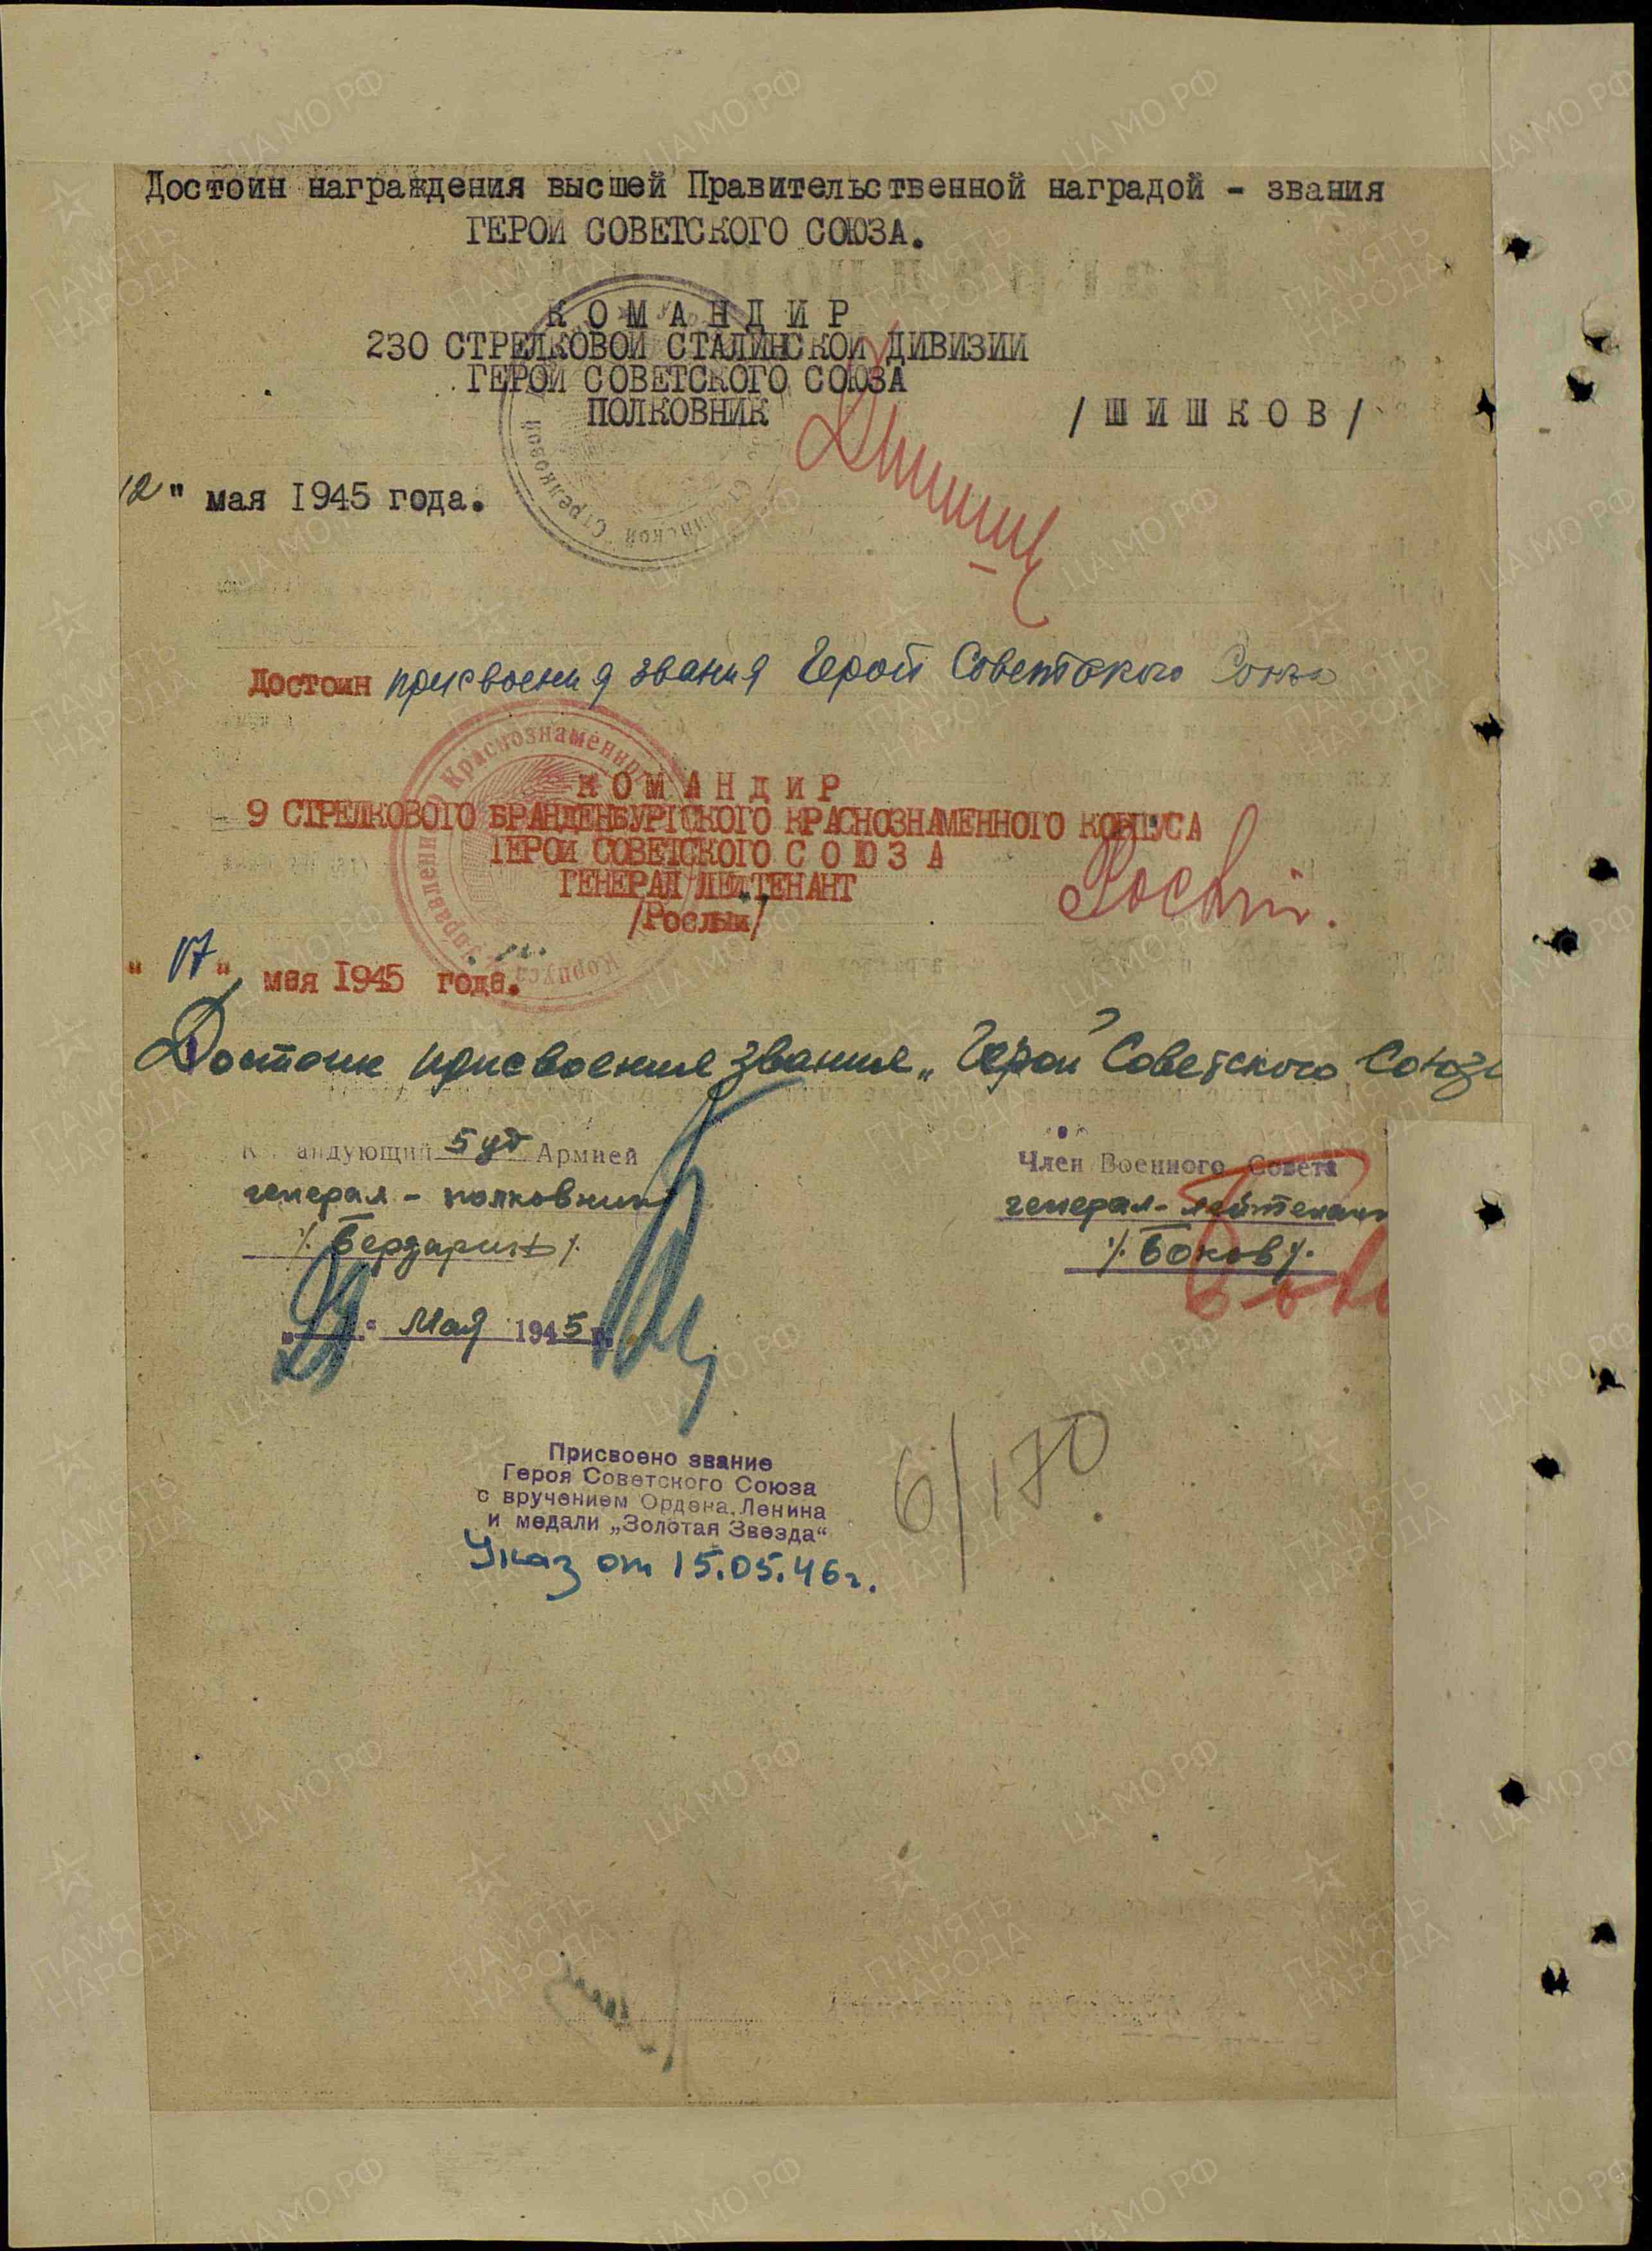 Достоин награждения высшей Правительственной наградой - звания
ГЕРОЙ СОВЕТСКОГО СОЮЗА.
КОМАНДИР
230 СТРЕЛКОВОЙ СТАЛИНСКОЙ ДИВИЗИИ
ГЕРОЙ СОВЕТСКОГО СОЮЗА
ПОЛКОВНИК
/ШИШКОВ/
12" мая 1945 года.
Достоин присвоения звания Герой Советского Союза
КОМАНДИР
9 СТРЕЛКОВОГО БРАНДЕНБУРГСКОГО КРАСНОЗНАМЕННОГО КОРПУСА
ГЕРОЙ СОВЕТСКОГО СОЮЗА
ГЕНЕРАЛ ЛЕЙТЕНАНТ
/Рослый/
"17" мая 1945 года.
Достоин присвоения звания „Герой Советского Союза
Командующий 5 уд Армией
генерал-полковник
/. Берзарин /.
Мая 1945 г.
Член Военного Совета
генерал-лейтенант
/. Боков /.
Присвоено звание
Героя Советского Союза
с вручением Ордена Ленина
и медали „Золотая Звезда“
Указ от 15.05.46г.
6/170
ЦАМО РФ
ПАМЯТЬ
НАРОДА